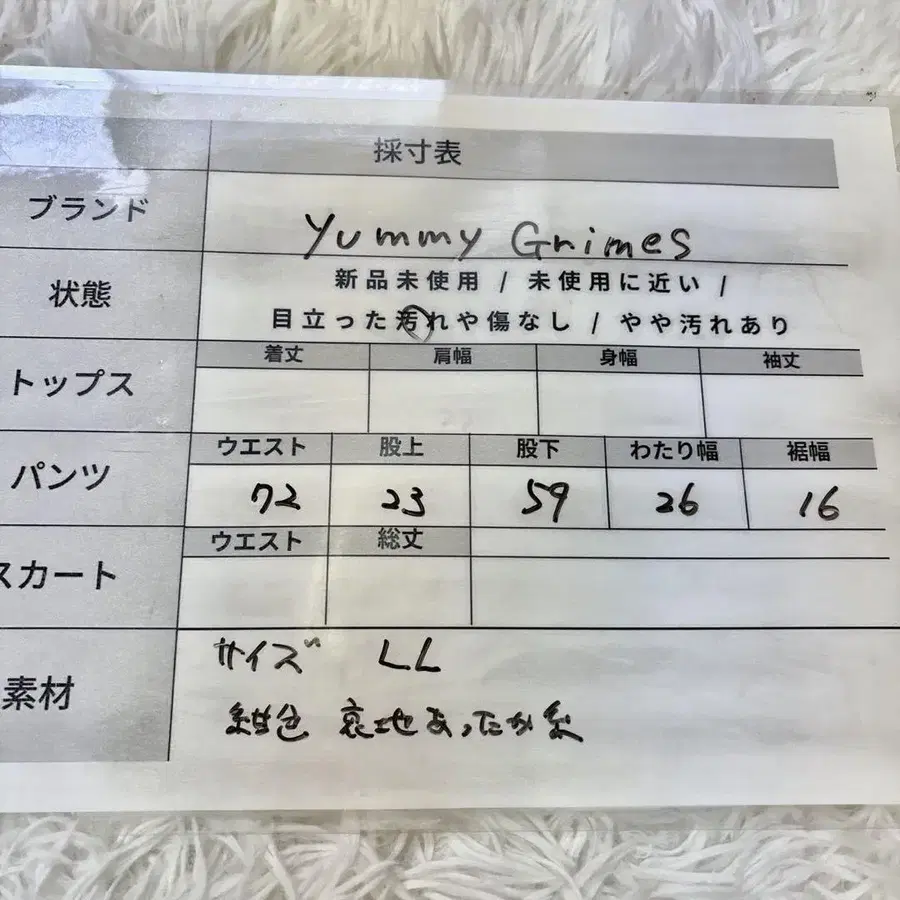 採寸表
ブランド
Yummy Grimes
状態
新品未使用 / 未使用に近い /
目立った汚れや傷なし / やや汚れあり
トップス
着丈 肩幅 身幅 袖丈
パンツ
ウエスト 股上 股下 わたり幅 裾幅
72 23 59 26 16
スカート
ウエスト 総丈
素材
サイズ LL
紺色 裏地あったか系